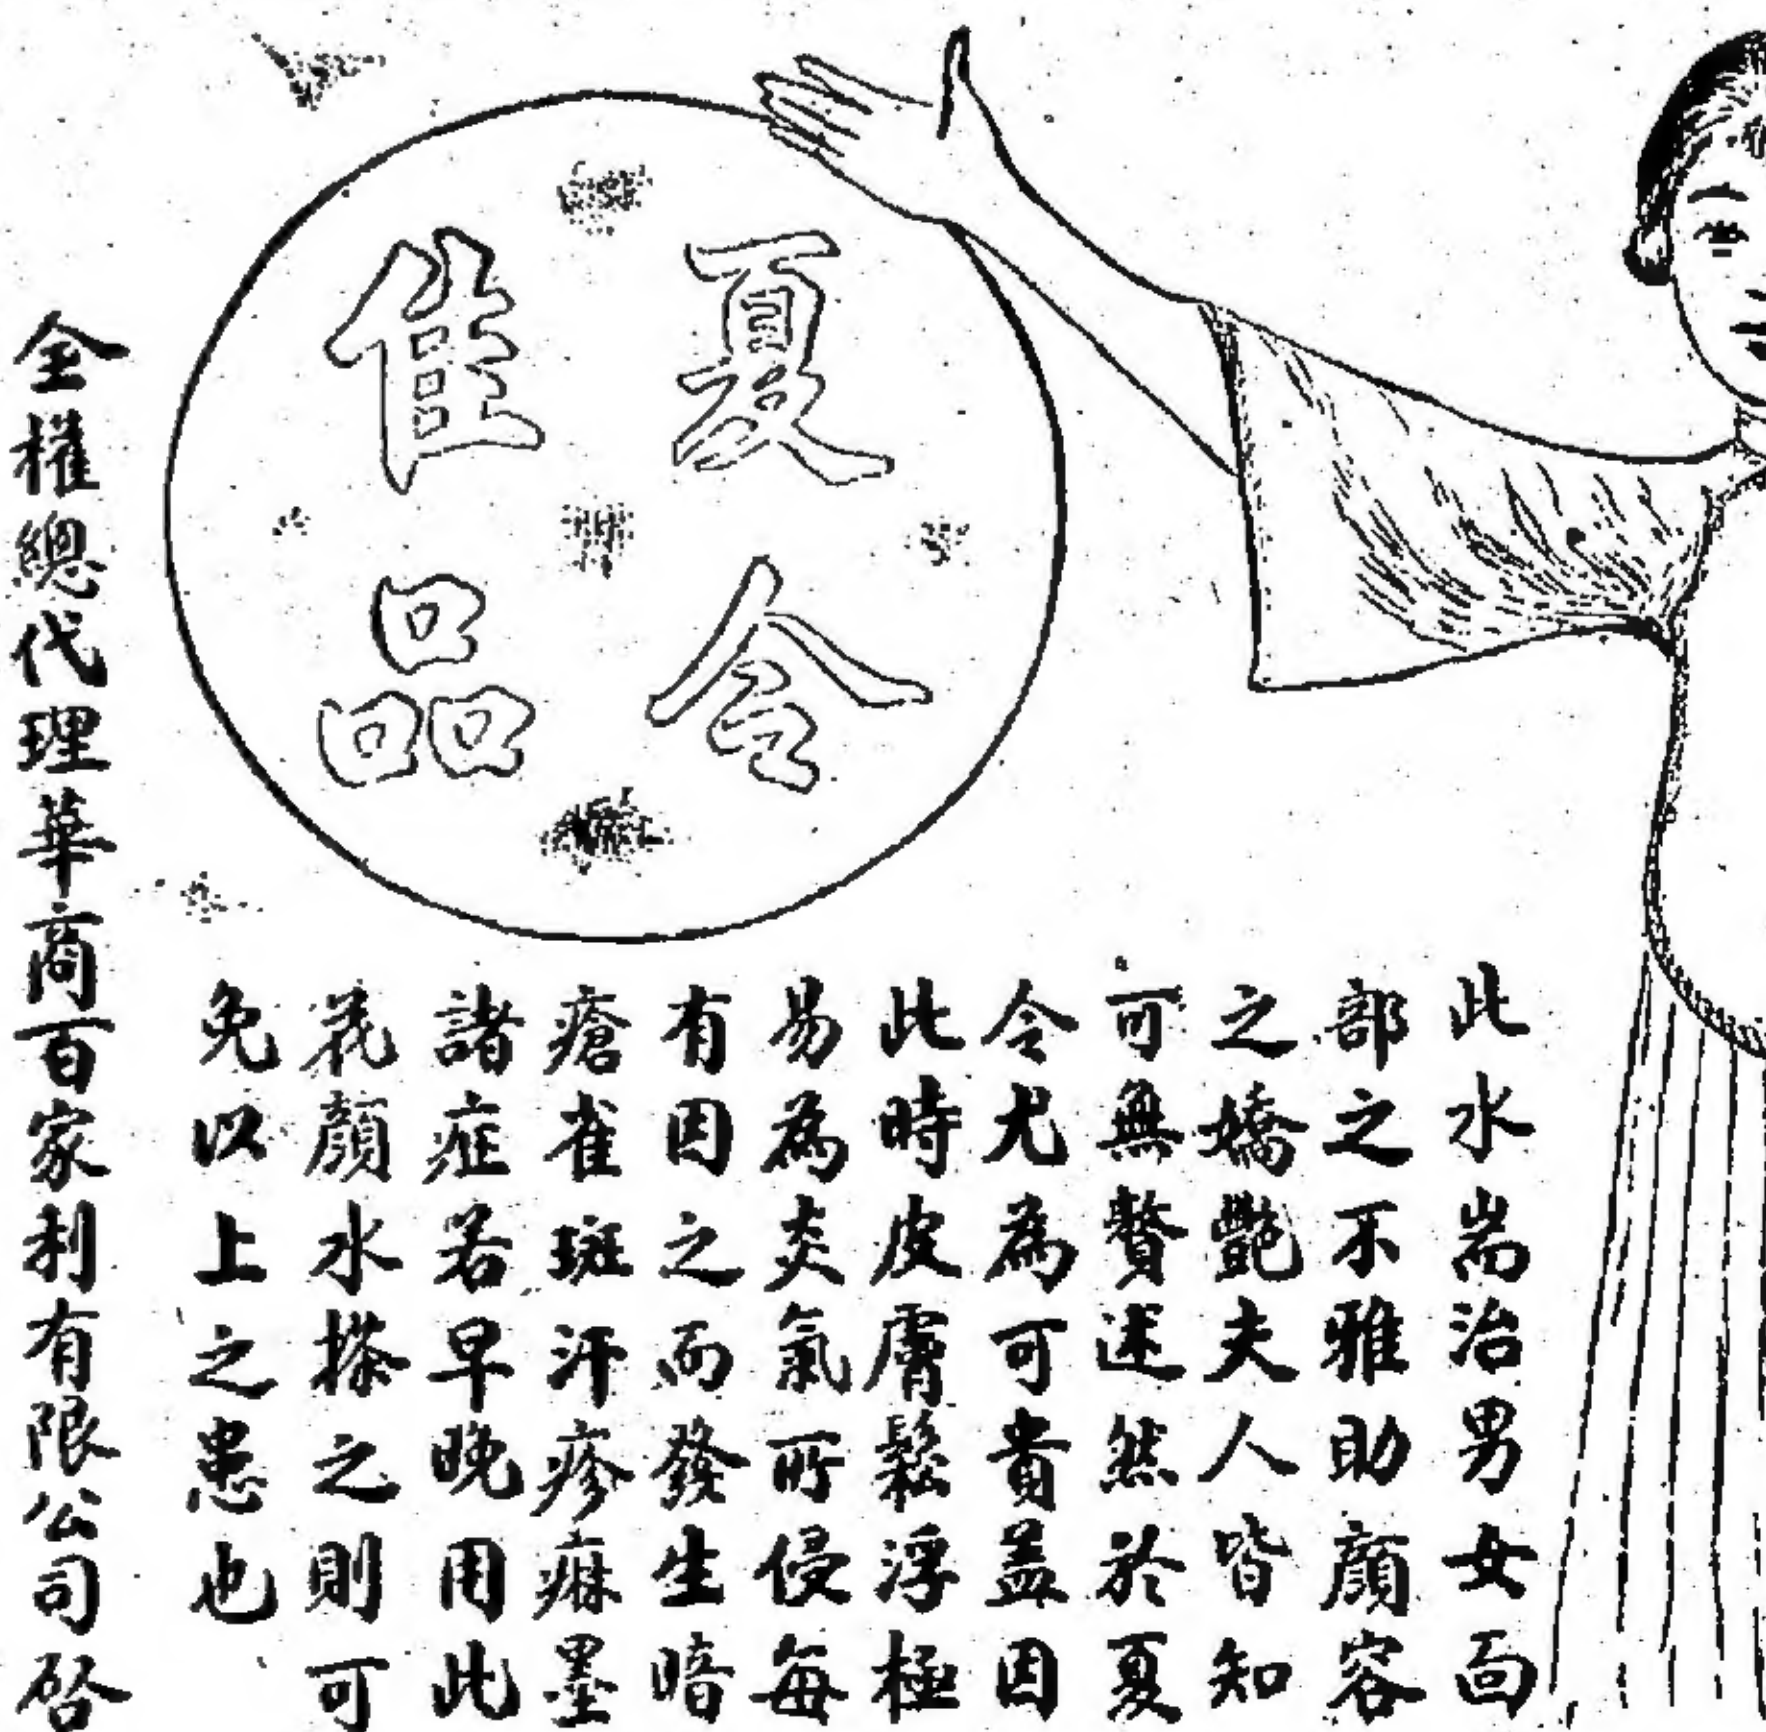 夏令
佳品
此水耑治男女面
部之不雅助顏容
之嬌艷夫人皆知
可無贅述然於夏
令尤為可貴蓋因
此時皮膚鬆浮極
易為炎氣所侵每
有因之而發生暗
瘡雀斑汗疹痲墨
諸症若早晚用此
花顏水搽之則可
免以上之患也
全權總代理華商百家利有限公司啓